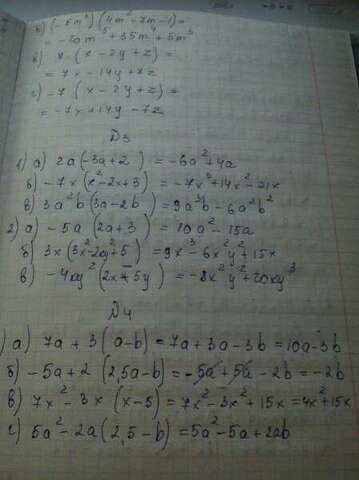 б) (-5m³)(4m²-7m-1)=
= -20m⁵+35m⁴+5m³
в) 7·(x-2y+z)=
= 7x-14y+7z
г) -7(x-2y+z)=
= -7x+14y-7z
Д3
1) а) 2a(-3a+2) = -6a²+4a
б) -7x(x²-2x+3) = -7x³+14x²-21x
в) 3a²b(3a-2b) = 9a³b-6a²b²
2) а) -5a(2a+3) = 10a²-15a
б) 3x(3x²-2xy²+5) = 9x³-6x²y²+15x
в) -4xy²(2x-5y) = -8x²y²+20xy³
Д4
) а) 7a+3(a-b) = 7a+3a-3b = 10a-3b
б) -5a+2(2,5a-b) = -5a+5a-2b = -2b
в) 7x²-3x(x-5) = 7x²-3x²+15x = 4x²+15x
г) 5a²-2a(2,5-b) = 5a²-5a+2ab